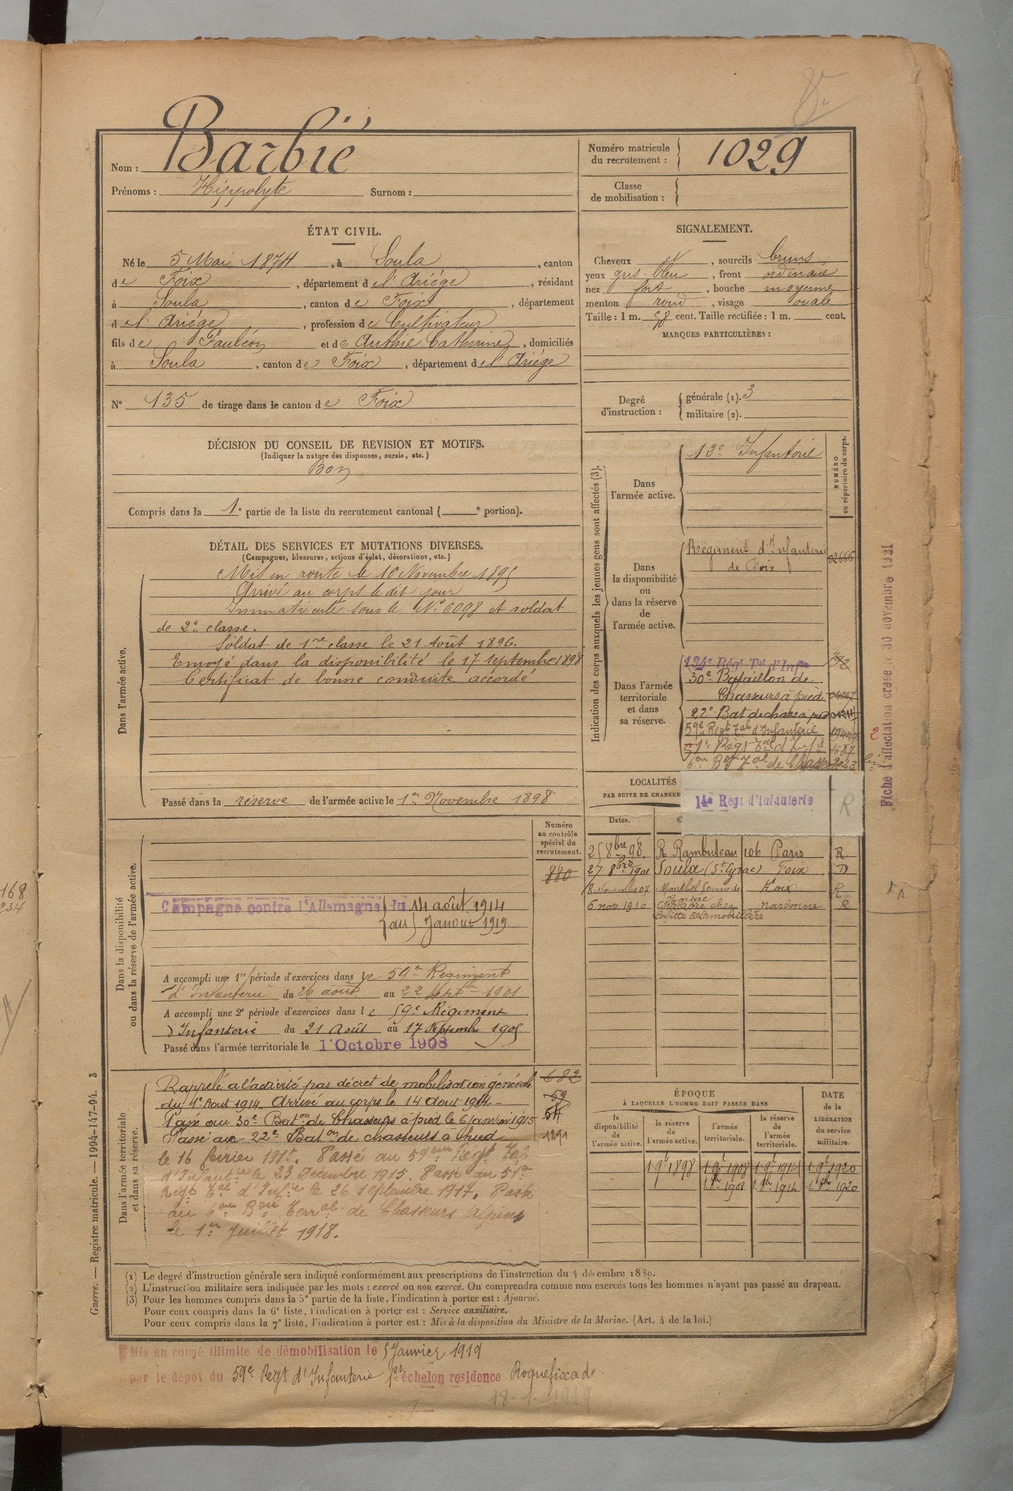 Nom : Barbié
Numéro matricule du recrutement : 1029
Prénoms : Hippolyte Surnom :
Classe de mobilisation :
ÉTAT CIVIL.
Né le 5 Mai 1874, à Soula, canton
de Foix, département de l'Ariége, résidant
à Soula, canton de Foix, département
de l'Ariége, profession de Cultivateur
fils de Paulin et de Authié Catherine, domiciliés
à Soula, canton de Foix, département de l'Ariége
N° 135 de tirage dans le canton de Foix
SIGNALEMENT.
Cheveux , sourcils bruns
yeux gris-bleu, front ordinaire
nez fort, bouche moyenne
menton rond, visage ovale
Taille : 1 m. cent. Taille rectifiée : 1 m. cent.
MARQUES PARTICULIÈRES :
Degré d'instruction : générale (1). 3
militaire (2).
DÉCISION DU CONSEIL DE REVISION ET MOTIFS.
(Indiquer la nature des dispenses, sursis, etc.)
Bon
Compris dans la 1e partie de la liste du recrutement cantonal ( e portion).
DÉTAIL DES SERVICES ET MUTATIONS DIVERSES.
(Campagnes, blessures, actions d'éclat, décorations, etc.)
Dans l'armée active.
Mis en route le 16 Novembre 1895
Arrivé au corps le dit jour
Immatriculé sous le N° 6098 et soldat
de 2e classe.
Soldat de 1re classe le 21 Août 1896.
Envoyé dans la disponibilité le 17 septembre 1898
Certificat de bonne conduite accordé
Passé dans la réserve de l'armée active le 1er Novembre 1898
Indication des corps auxquels les jeunes gens sont affectés (3).
NUMÉRO au répertoire du corps.
Dans l'armée active.
Infanterie
Dans la disponibilité ou dans la réserve de l'armée active.
Régiment d'Infanterie
de Foix
Dans l'armée territoriale et dans sa réserve.
134e Régt Tal d'Infie
30e Bataillon de
Chasseurs à pied
22e Bat de chass à pied
59e Régt Tal d'Infanterie
14e Regt d'Infanterie
R
Fiche d'affectation créée le 30 novembre 1921
LOCALITÉS
Dates.
R. Rambuteau 106 Paris R
Soula (St Cyrac) Foix D
Foix R
6 nov. 1910 Narbonne R
Numéro au contrôle spécial du recrutement.
880
Dans la disponibilité ou dans la réserve de l'armée active.
Campagne contre l'Allemagne du 14 août 1914
au 5 Janvier 1919
A accompli une 1re période d'exercices dans le 59e Régiment
d'Infanterie du 26 août au 22 sept 1901
A accompli une 2e période d'exercices dans le 59e Régiment
d'Infanterie du 21 Août au 17 Septembre 1905
Passé dans l'armée territoriale le 1er Octobre 1908
Dans l'armée territoriale et dans sa réserve.
Rappelé à l'activité par décret de mobilisation générale
du 1er Août 1914. Arrivé au corps le 14 août 1914
Passé au 30e Baton de Chasseurs à pied le 6 Janvier 1915
Passé au 22e Baton de chasseurs à pied
le 16 février 1915. Passé au 59eme Regt Tal
d'Infanterie le 23 Décembre 1915. Passé au 51e
Regt Tal d'Infie le 26 septembre 1917. Passé
au 6eme Bon Terral de Chasseurs alpins
le 1er Juillet 1918.
682
59
1291
ÉPOQUE
À LAQUELLE L'HOMME DOIT PASSER DANS
la disponibilité de l'armée active.
la réserve de l'armée active.
l'armée territoriale.
la réserve de l'armée territoriale.
DATE de la LIBÉRATION du service militaire.
(1) Le degré d'instruction générale sera indiqué conformément aux prescriptions de l'instruction du 4 décembre 1889.
(2) L'instruction militaire sera indiquée par les mots : exercé ou non exercé. On comprendra comme non exercés tous les hommes n'ayant pas passé au drapeau.
(3) Pour les hommes compris dans la 5e partie de la liste, l'indication à porter est : Ajourné.
Pour ceux compris dans la 6e liste, l'indication à porter est : Service auxiliaire.
Pour ceux compris dans la 7e liste, l'indication à porter est : Mis à la disposition du Ministre de la Marine. (Art. 4 de la loi.)
Guerre. — Registre matricule. — 1994-147-94. 3
Mis en congé illimité de démobilisation le 5 Janvier 1919
par le dépôt du 59e Régt d'Infanterie échelon résidence Roquefixade